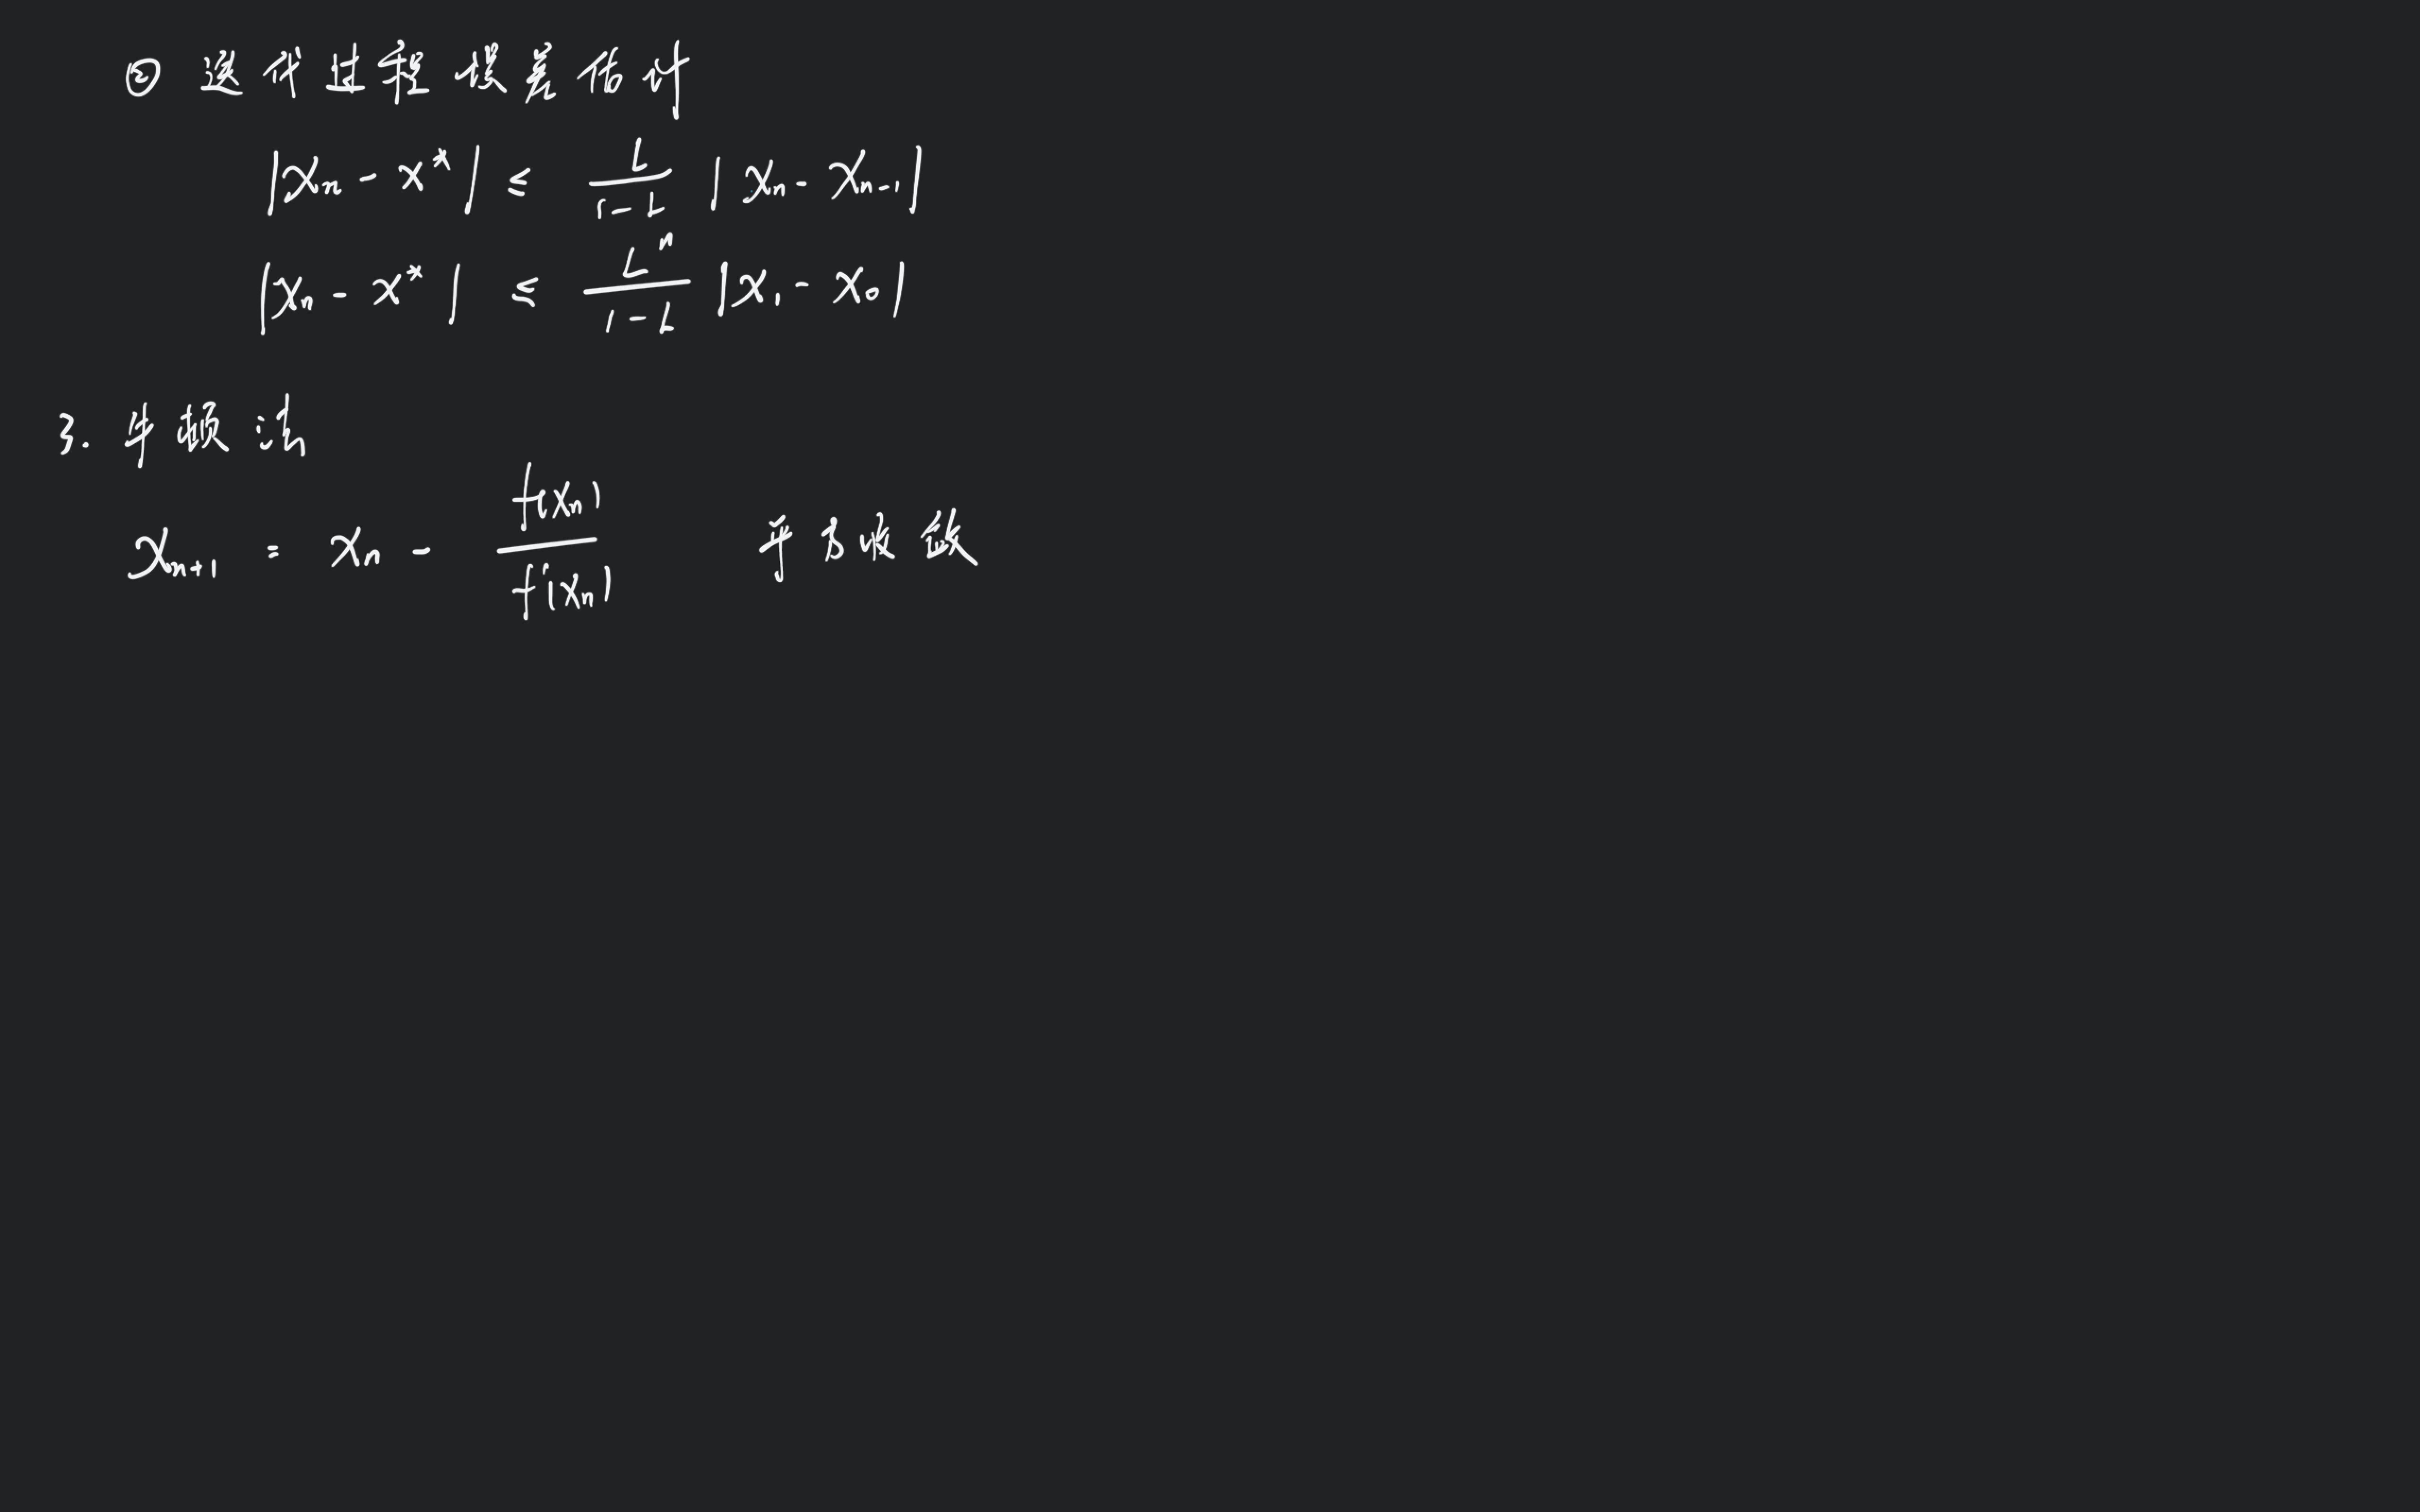 ② 迭代过程误差估计
|xₙ - x*| ≤ L/(1-L) |xₙ - xₙ₋₁|
|xₙ - x*| ≤ Lⁿ/(1-L) |x₁ - x₀|
3. 牛顿法
xₙ₊₁ = xₙ - f(xₙ)/f'(xₙ) 平方收敛